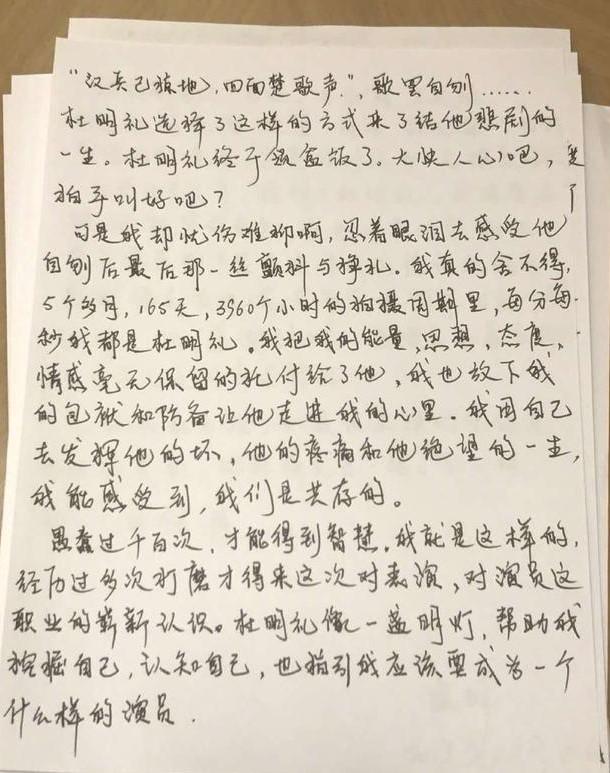 “汉兵已掠地,四面楚歌声”,歌罢自刎……
杜明礼选择了这样的方式来了结他悲剧的
一生。杜明礼终于领盒饭了。大快人心吧,
拍手叫好吧?
可是我却忧伤难抑啊,忍着眼泪去感受他
自刎后最后那一丝颤抖与挣扎。我真的舍不得,
5个多月,165天,3960个小时的拍摄周期里,每分每
秒我都是杜明礼。我把我的能量,思想,态度,
情感毫无保留的托付给了他,我也放下我
的包袱和防备让他走进我的心里。我用自己
去发挥他的坏,他的疼痛和他绝望的一生,
我能感受到,我们是共存的。
愚蠢过千百次,才能得到智慧。我就是这样的,
经历过多次打磨才得来这次对表演,对演员这
职业的崭新认识。杜明礼像一盏明灯,帮助我
挖掘自己,认知自己,也指引我应该要成为一个
什么样的演员.